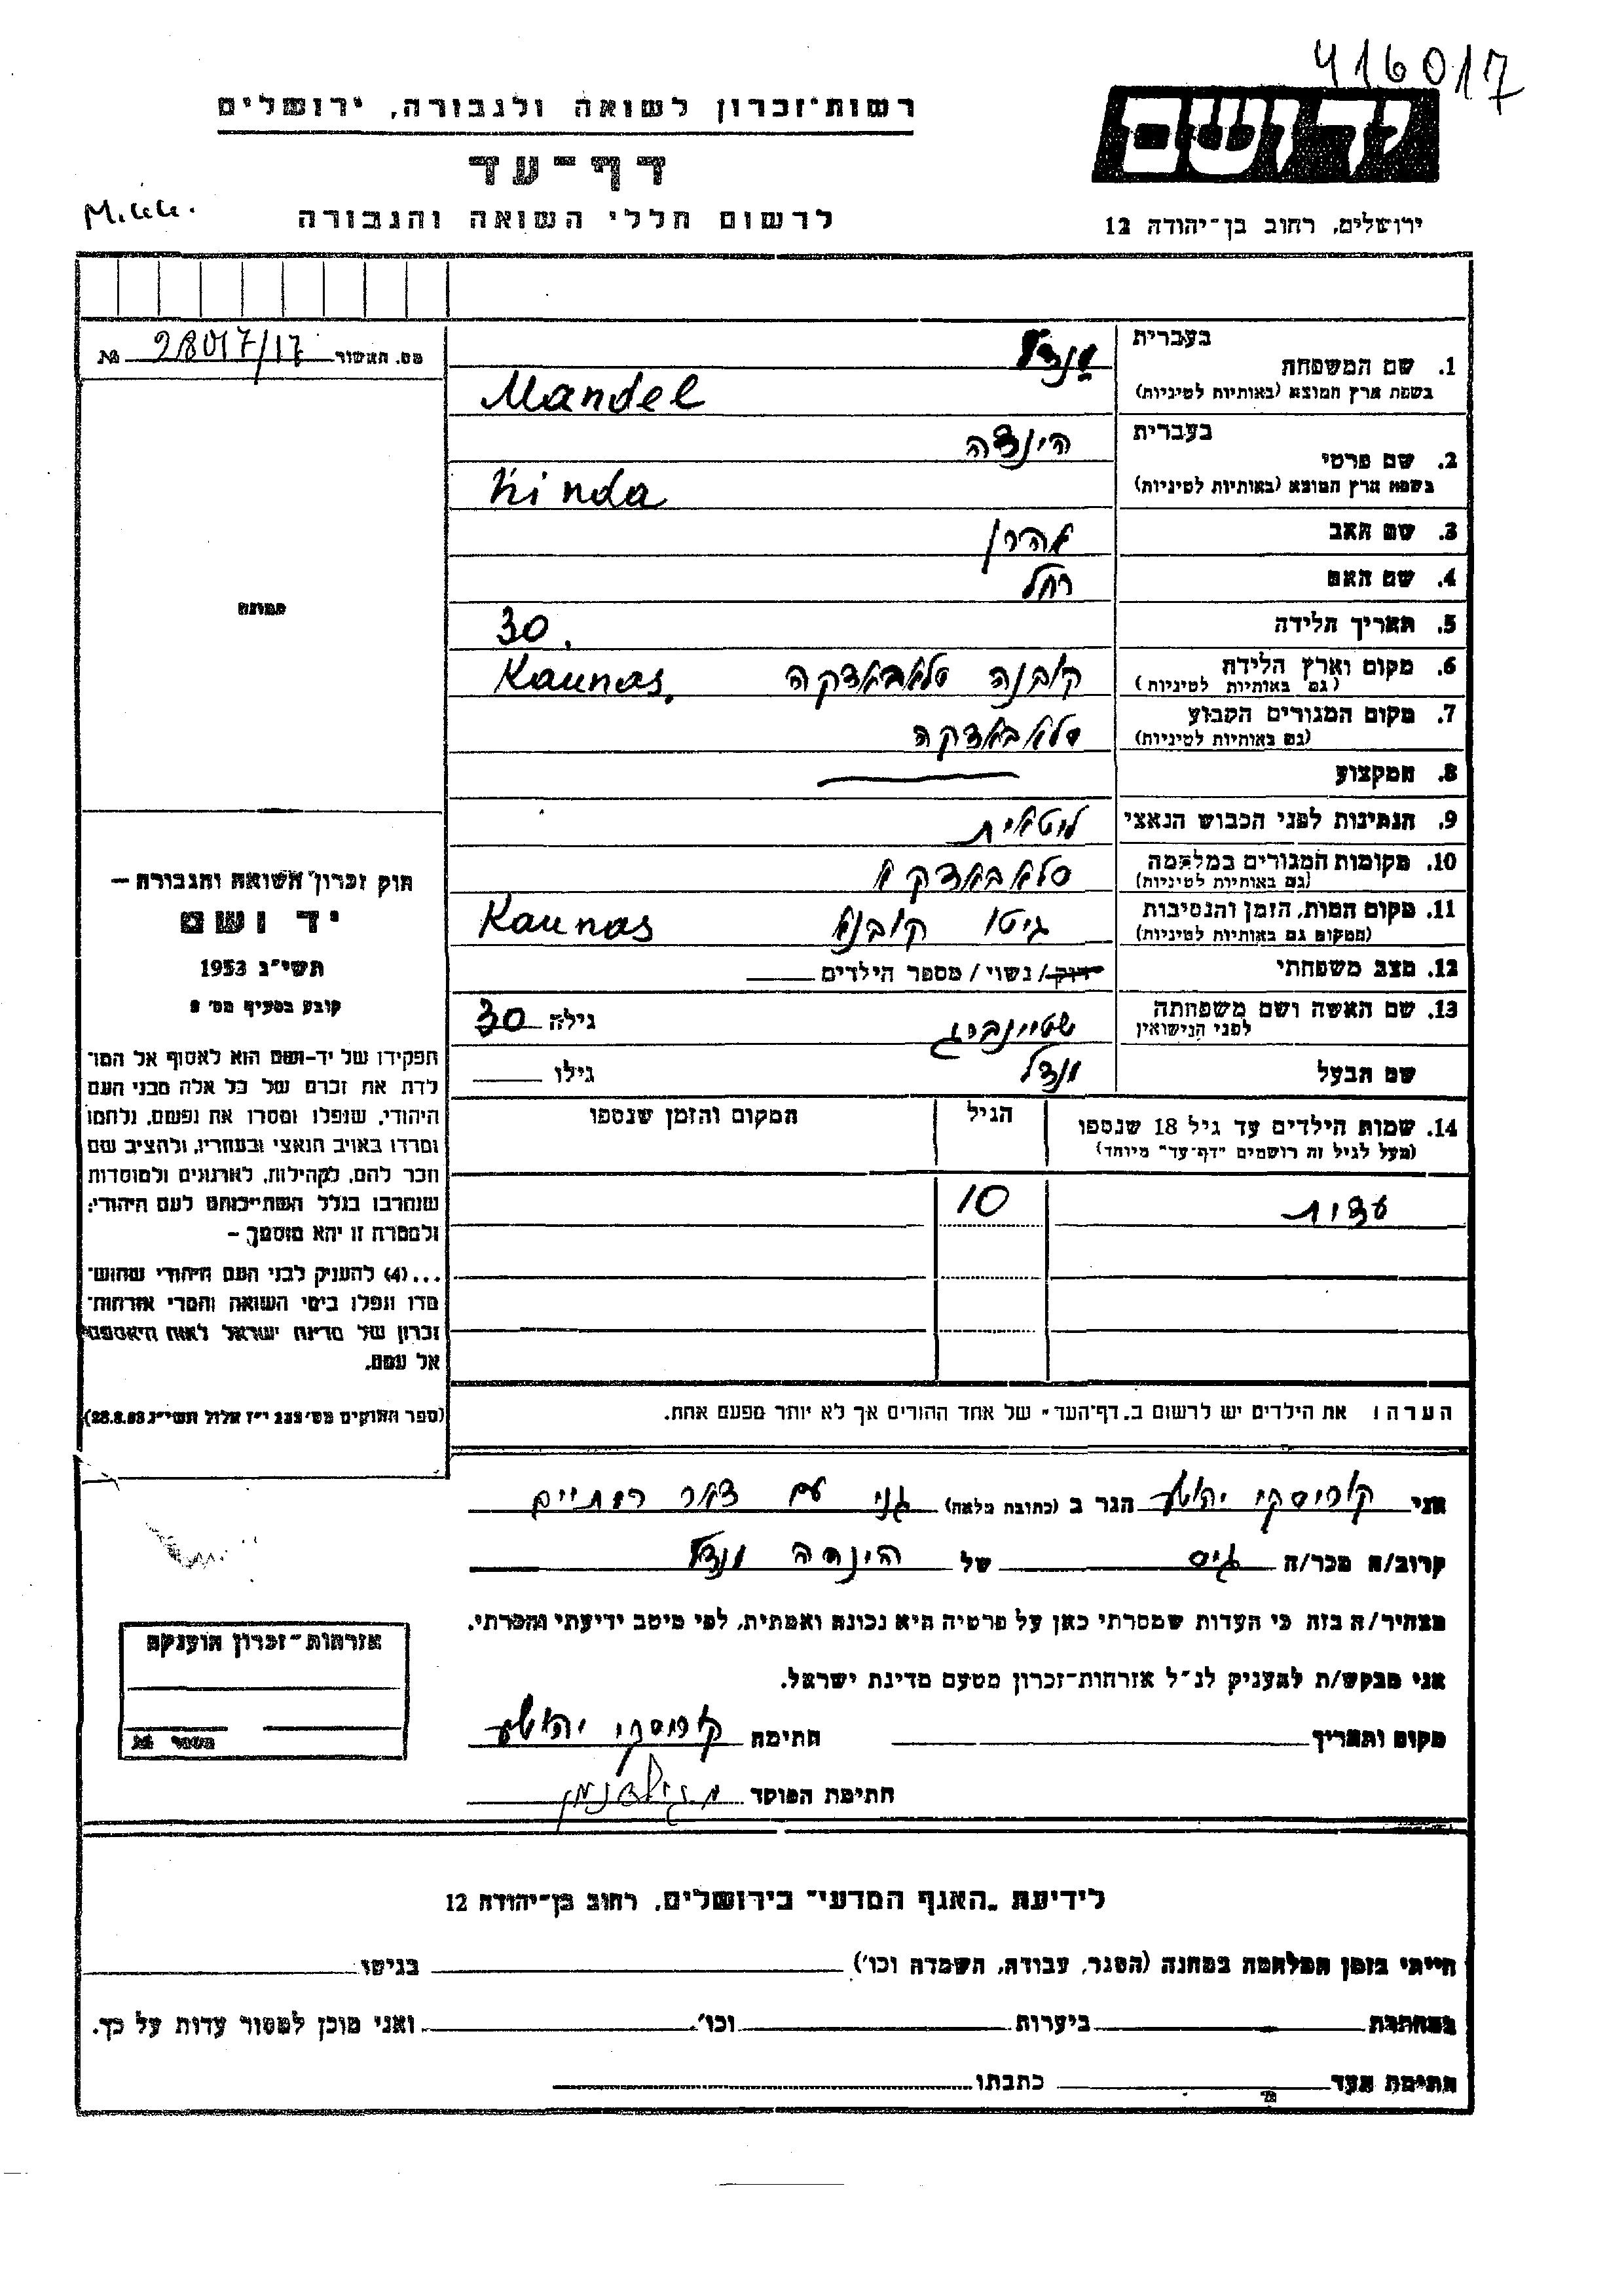 416017
רשות־זכרון לשואה ולגבורה, ירושלים
יד ושם
דף־עד
לרשום חללי השואה והגבורה
ירושלים, רחוב בן־יהודה 12
מס. האשור 28017/17 №
1. שם המשפחה
בעברית מנדל
בשפת ארץ המוצא (באותיות לטיניות) Mandel
2. שם פרטי
בעברית הינדה
בשפת ארץ המוצא (באותיות לטיניות) Hinda
3. שם האב אהרון
4. שם האם רחל
5. תאריך הלידה 30.
6. מקום וארץ הלידה קובנה סלאבאדקה Kaunas.
(גם באותיות לטיניות)
7. מקום המגורים הקבוע סלאבאדקה
(גם באותיות לטיניות)
8. המקצוע
9. הנתינות לפני הכבוש הנאצי ליטאית
10. מקומות המגורים במלחמה סלאבאדקא
(גם באותיות לטיניות)
11. מקום המות, הזמן והנסיבות גיטו קובנא Kaunas
(המקום גם באותיות לטיניות)
12. מצב משפחתי רווק / נשוי / מספר הילדים
13. שם האשה ושם משפחתה גילה 30
לפני הנישואין
שם הבעל מנדל גילו
14. שמות הילדים עד גיל 18 שנספו הגיל המקום והזמן שנספו
(מעל לגיל זה רושמים "דף־עד" מיוחד)
10
הערה: את הילדים יש לרשום ב„דף־העד" של אחד ההורים אך לא יותר מפעם אחת.
תמונה
חוק זכרון השואה והגבורה –
יד ושם
תשי"ג 1953
קובע בסעיף מס' 2
תפקידו של יד-ושם הוא לאסוף אל המו־
לדת את זכרם של כל אלה מבני העם
היהודי, שנפלו ומסרו את נפשם, נלחמו
ומרדו באויב הנאצי ובעוזריו, ולהציב שם
וזכר להם, לקהילות, לארגונים ולמוסדות
שנחרבו בגלל השתייכותם לעם היהודי;
ולמטרה זו יהא מוסמך –
...(4) להעניק לבני העם היהודי שהוש־
מדו ונפלו בימי השואה והמרי אזרחות־
זכרון של מדינת ישראל לאות היאספם
אל עמם.
(ספר החוקים מס' 132 י"ז אלול תשי"ג 28.8.53)
אני קופיסקי יהושע הגר ב (כתובת מלאה) גני עם דאר רמתיים
קרוב/ה מכר/ה גיס של הינדה מנדל
מצהיר/ה בזה כי העדות שמסרתי כאן על פרטיה היא נכונה ואמתית, לפי מיטב ידיעתי והכרתי.
אני מבקש/ת להעניק לנ"ל אזרחות־זכרון מטעם מדינת ישראל.
מקום ותאריך חתימה קופיסקי יהושע
חתימת הפוקד
אזרחות־זכרון הוענקה
מספר №
לידיעת „האגף המדעי" בירושלים, רחוב בן־יהודה 12
הייתי בזמן המלחמה במחנה (הסגר, עבודה, השמדה וכו') בגיטו
במחתרת ביערות וכו'. ואני מוכן למסור עדות על כך.
חתימת העד כתבתו